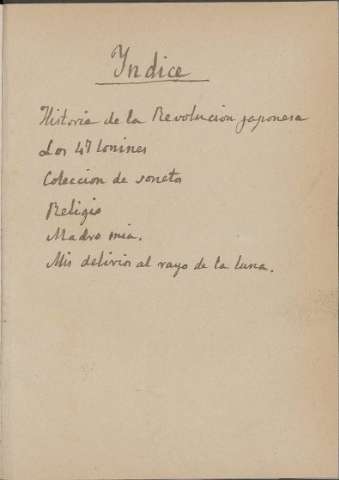 Indice
Historia de la Revolucion japonesa
Los 47 lonines
Coleccion de sonetos
Religio
Madre mia.
Mis delirios al rayo de la luna.